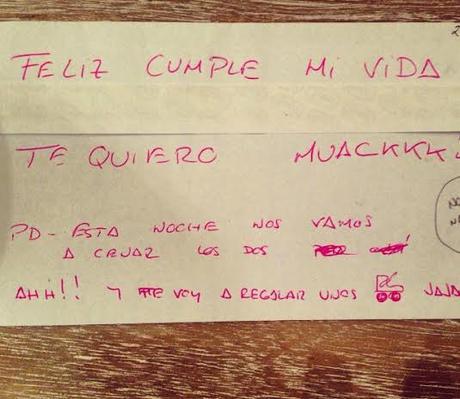 2
FELIZ CUMPLE MI VIDA
TE QUIERO MUACKKKK!
PD- ESTA NOCHE NOS VAMOS
A CENAR LOS DOS
AHH!! Y TE VOY A REGALAR UNOS JAJA